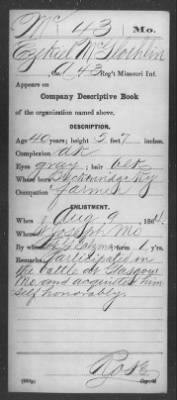 Mc | 43 | Mo.
Ezekiel McGlothlin
, 43 Reg't Missouri Inf.
Appears on
Company Descriptive Book
of the organization named above.
DESCRIPTION.
Age 40 years; height 5 feet 7 inches.
Complexion dk
Eyes gray; hair blk
Where born Breckinridge Ky
Occupation farmer
ENLISTMENT.
When Aug 9, 1864.
Where St Joseph Mo
By whom term 1 y'rs.
Remarks: Participated in
the battle of Glasgow
Mo and acquitted him
self honorably.
Copyist.